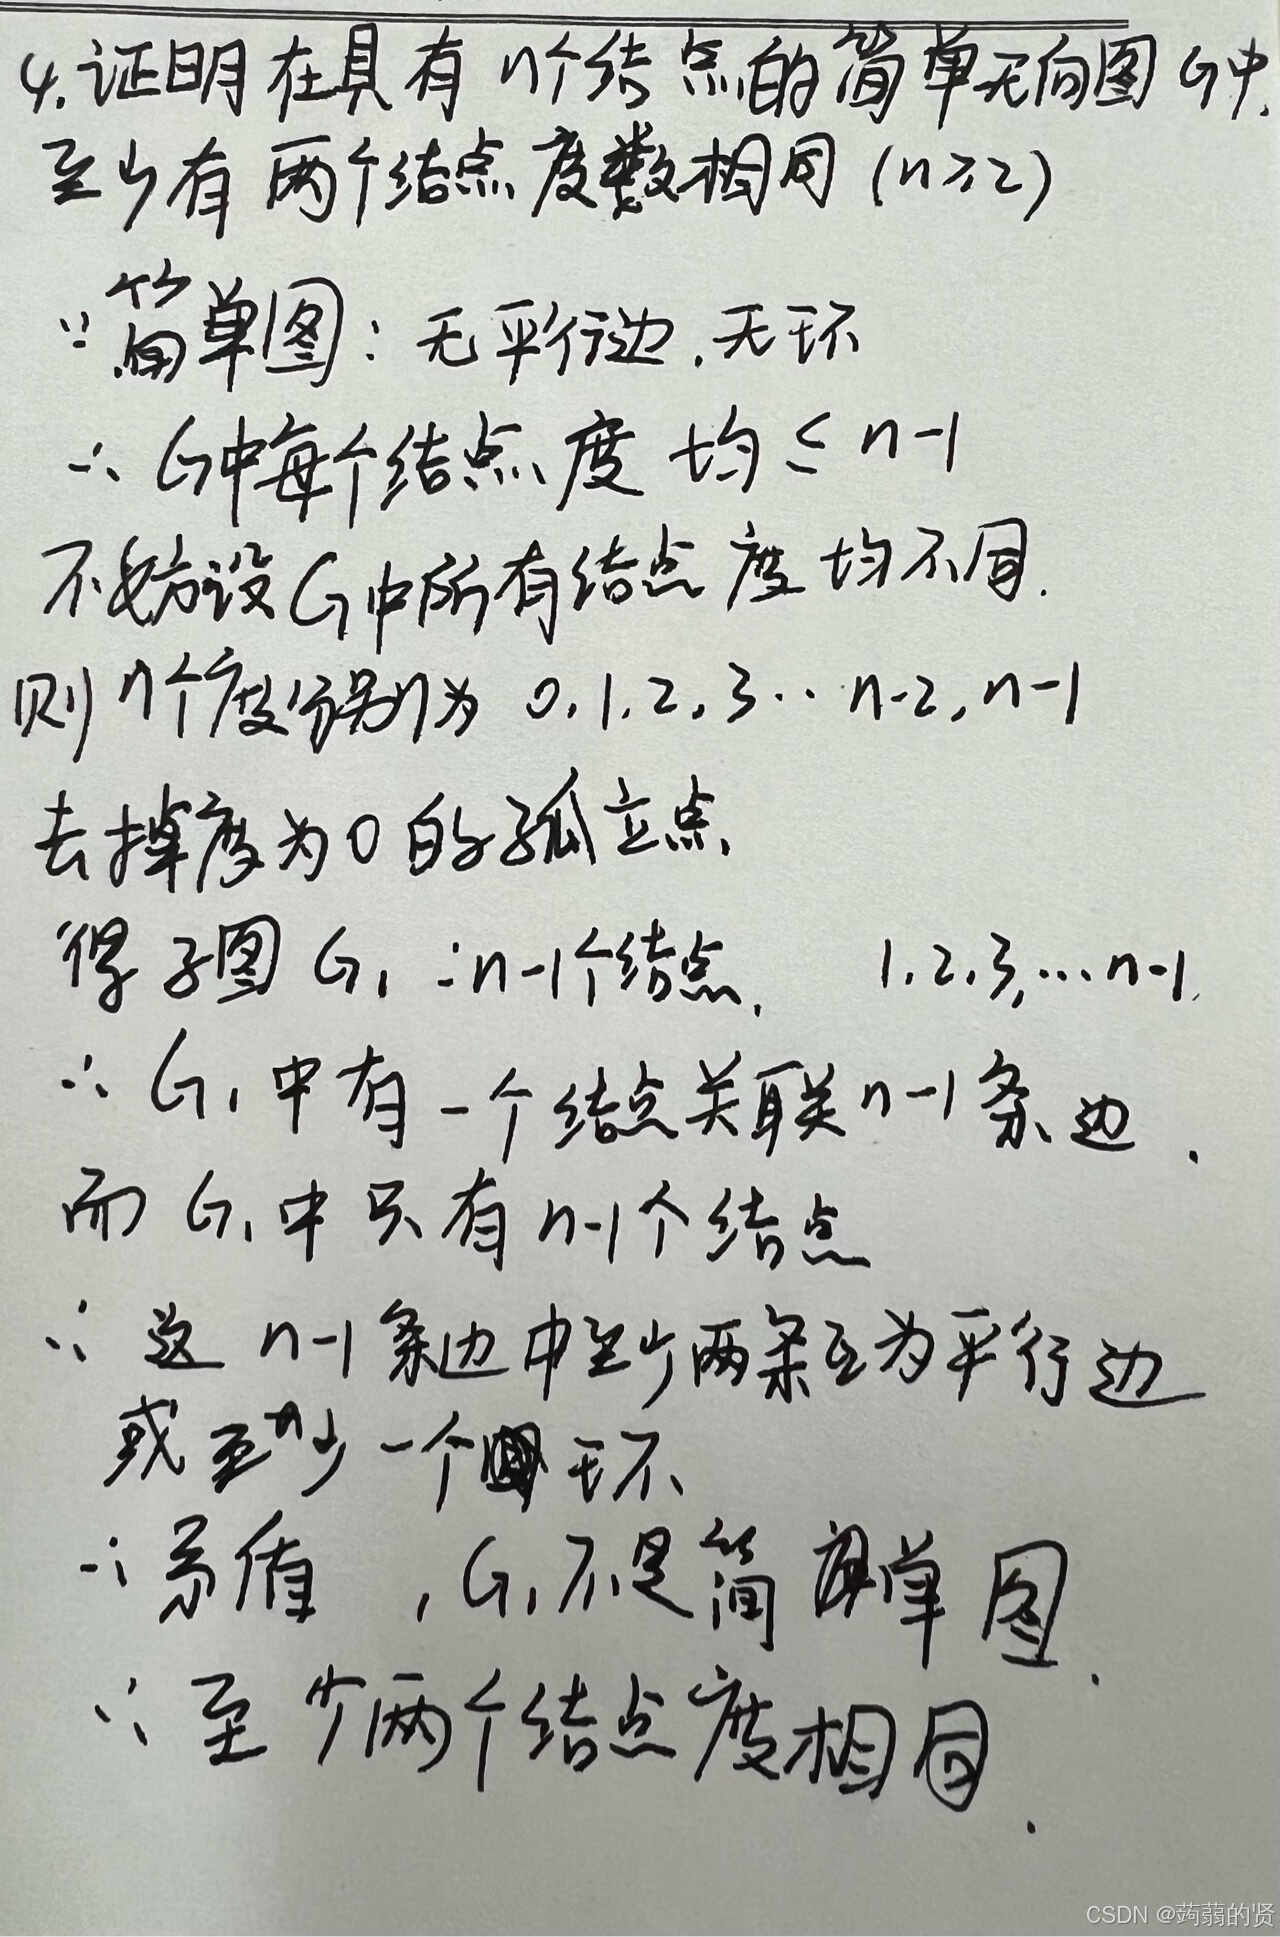 4.证明在具有n个结点的简单无向图G中,
至少有两个结点度数相同(n≥2)
∵简单图:无平行边,无环
∴G中每个结点度均≤n-1
不妨设G中所有结点度均不同.
则n个度分别为0,1,2,3…n-2,n-1
去掉度为0的孤立点,
得子图G₁:n-1个结点, 1,2,3,…n-1,
∴G₁中有一个结点关联n-1条边.
而G₁中只有n-1个结点
∴这n-1条边中至少两条互为平行边
或至少一个环
∴矛盾,G₁不是简单图.
∴至少两个结点度相同.
CSDN @蒟蒻的贤